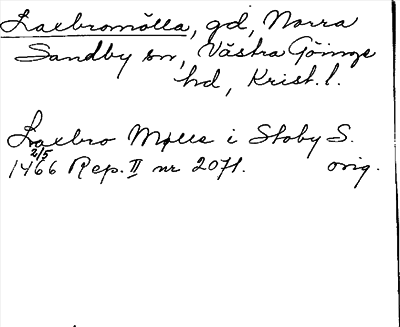 Laxbromölla, gd, Norra
Sandby sn, Västra Göinge
hd, Krist. l.
Laxbro Mølle i Stoby S.
2/5
1466 Rep. II nr 2071. orig.